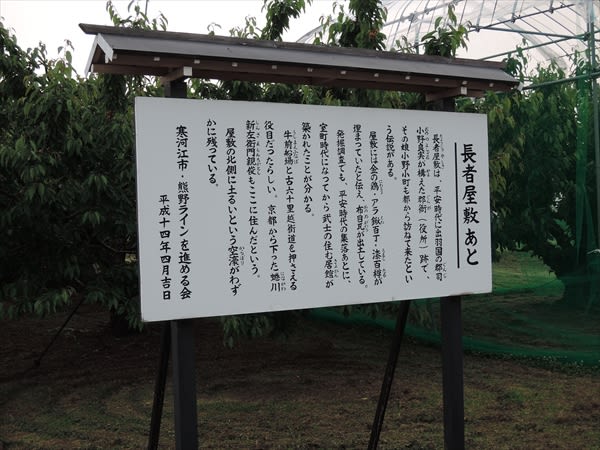 長者屋敷あと
長者屋敷は、平安時代に出羽国の郡司
小野良実が構えた郡衙（役所）跡で、
その娘小野小町も都から訪ねて来たとい
う伝説がある。
屋敷には金の鶏・アラ鍬百丁・漆百樽が
埋まっていたと伝え、布目瓦が出土している。
発掘調査でも、平安時代の集落あとに、
室町時代になってから武士の住む居館が
築かれたことが分かる。
牛前船場と古六十里越街道を押さえる
役目だったらしい。京都から下った蜷川
新左衛門親俊もここに住んだという。
屋敷の北側に土るいという空濠がわず
かに残っている。
寒河江市・熊野ラインを進める会
平成十四年四月吉日